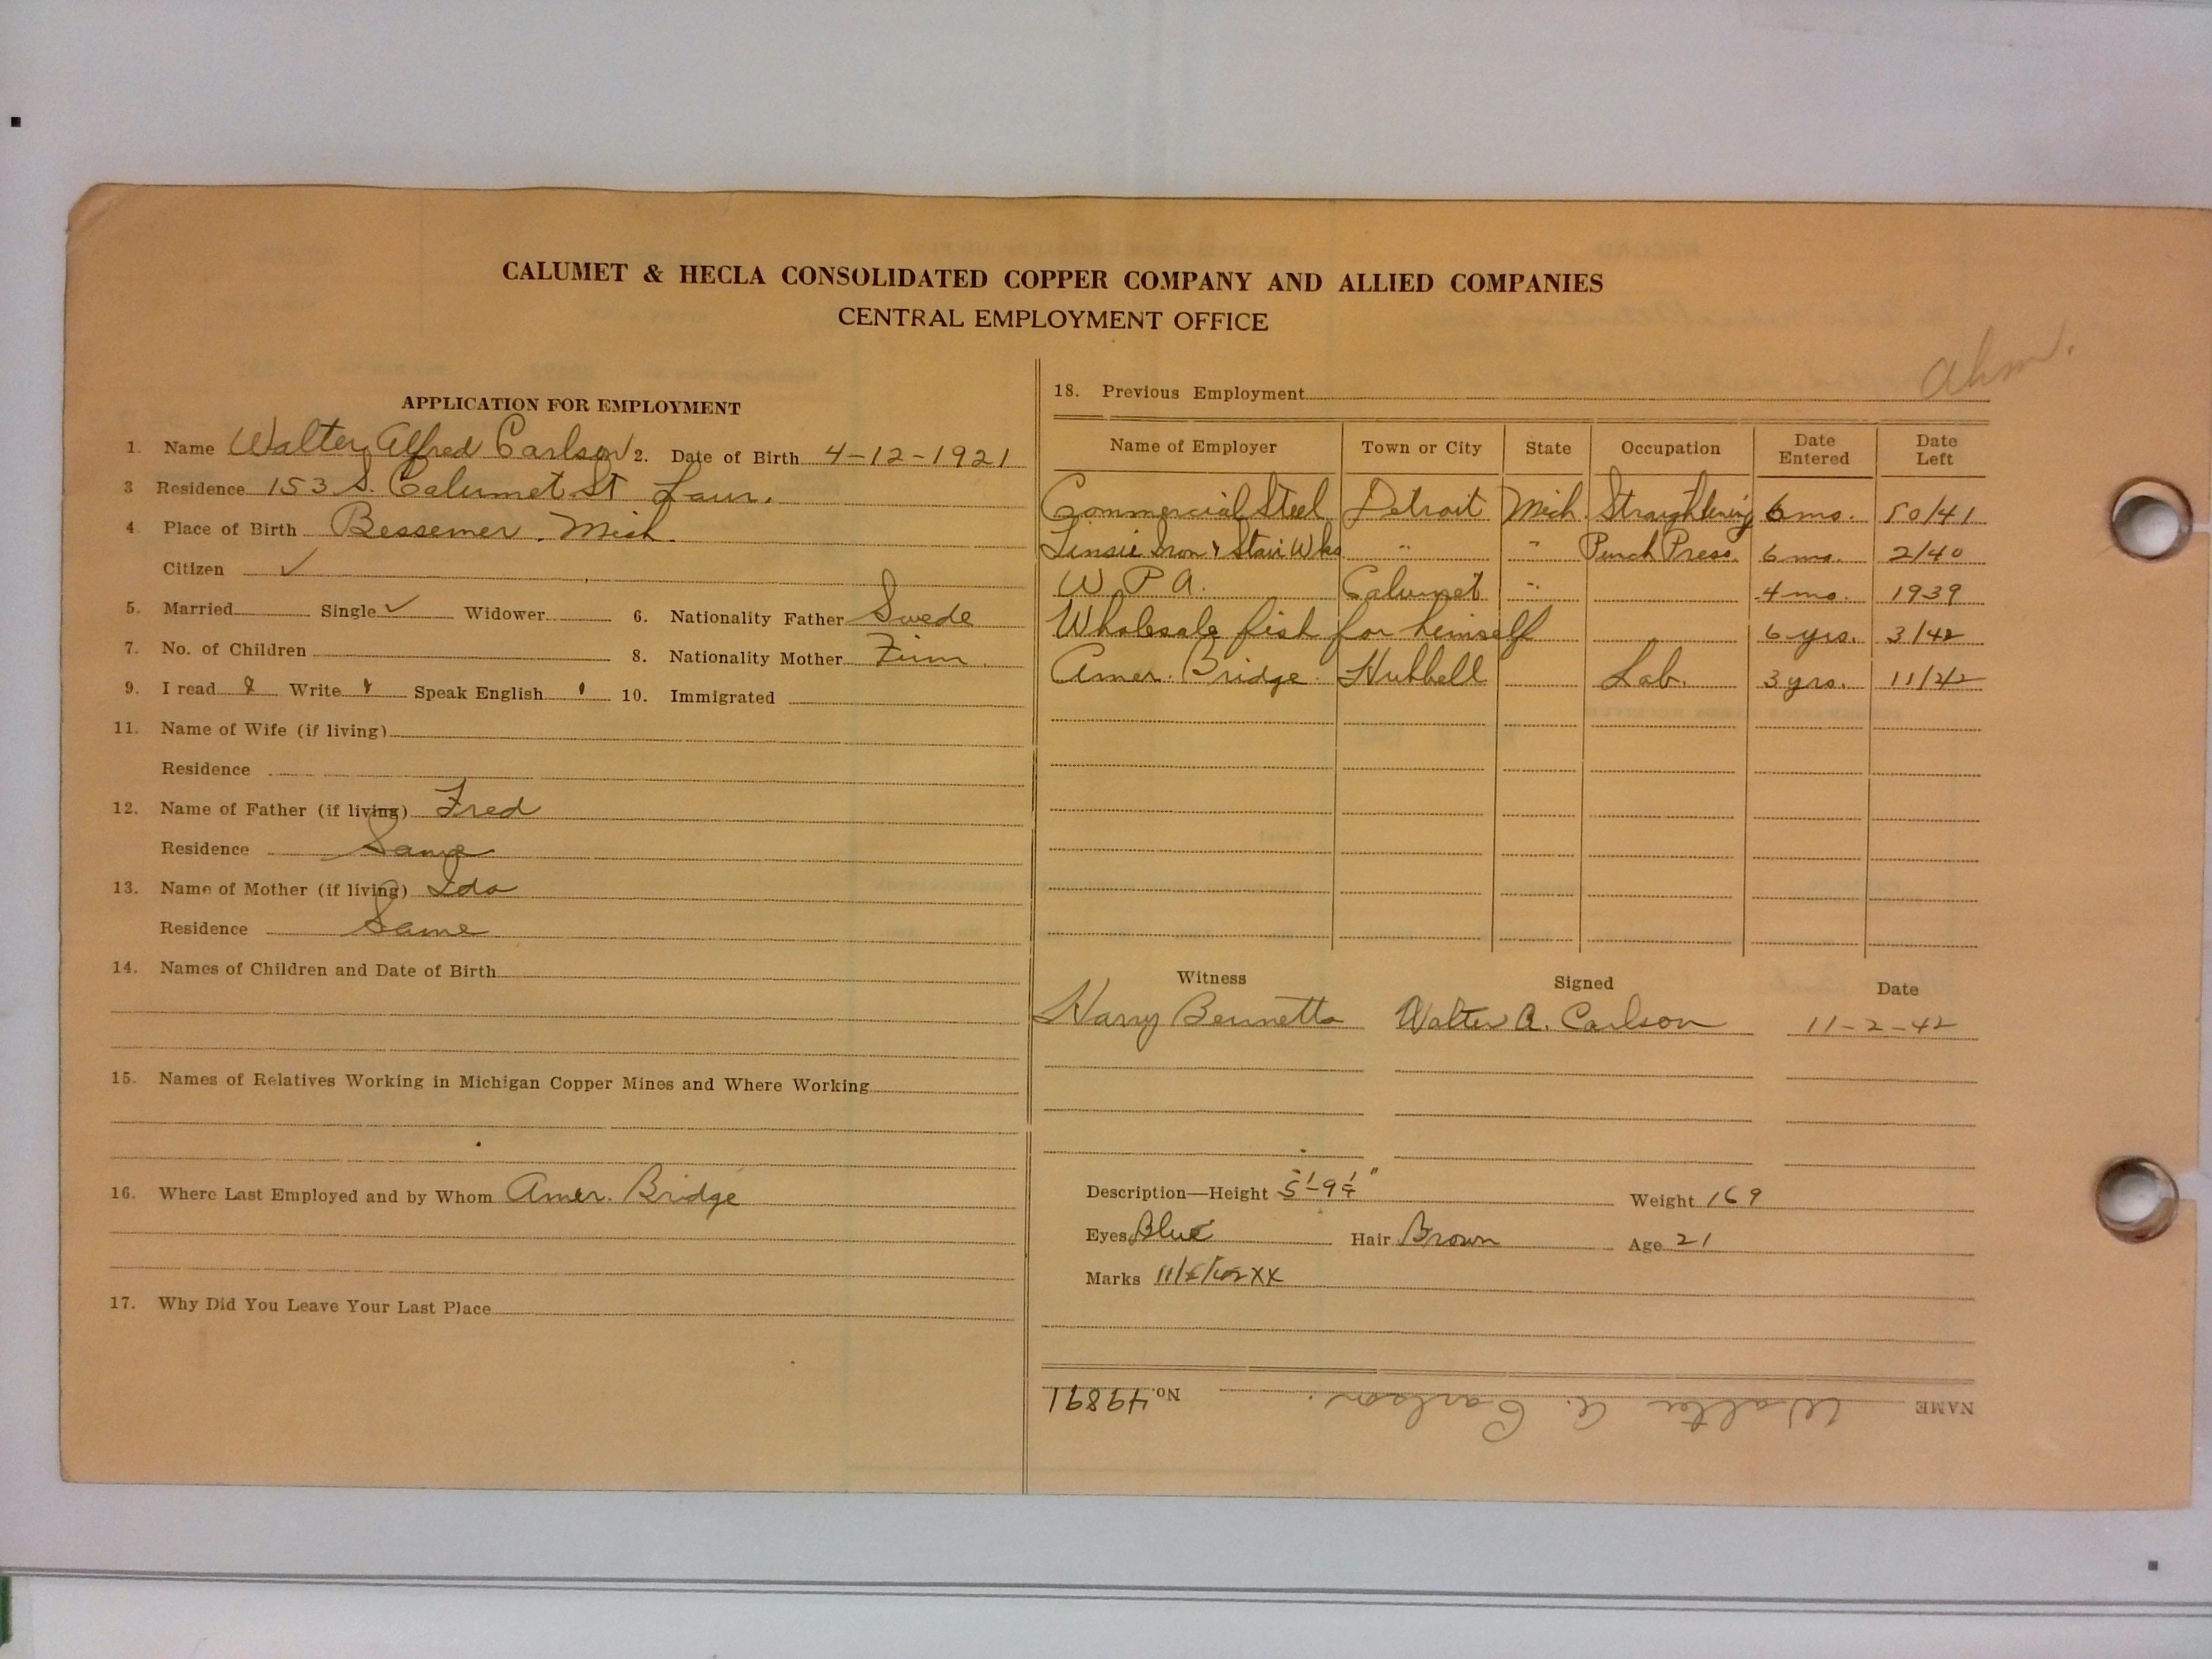 CALUMET & HECLA CONSOLIDATED COPPER COMPANY AND ALLIED COMPANIES
CENTRAL EMPLOYMENT OFFICE
APPLICATION FOR EMPLOYMENT
1. Name Walter Alfred Carlson 2. Date of Birth 4-12-1921
3 Residence 153 S. Calumet St Laur.
4. Place of Birth Bessemer, Mich.
Citizen ✓
5. Married Single ✓ Widower 6. Nationality Father Swede
7. No. of Children 8. Nationality Mother Finn.
9. I read Write Speak English 10. Immigrated
11. Name of Wife (if living)
Residence
12. Name of Father (if living) Fred
Residence Same
13. Name of Mother (if living) Ida
Residence Same
14. Names of Children and Date of Birth
15. Names of Relatives Working in Michigan Copper Mines and Where Working
16. Where Last Employed and by Whom Amer. Bridge
17. Why Did You Leave Your Last Place
18. Previous Employment
Name of Employer Town or City State Occupation Date Entered Date Left
Commercial Steel Detroit Mich. Straightening 6 mo. /41
Iron & Stair Wks " " Punch Press. 6 mo. 2/40
W P A. Calumet " 4 mo. 1939
Wholesale fish for himself 6 yrs. 3/42
Amer. Bridge Hubbell Lab. 3 yrs. 11/42
Witness Signed Date
Harry Bennetts Walter A. Carlson 11-2-42
Description—Height 5'-9¼" Weight 169
Eyes Blue Hair Brown Age 21
Marks XX
NAME Walter A. Carlson. No. 49891